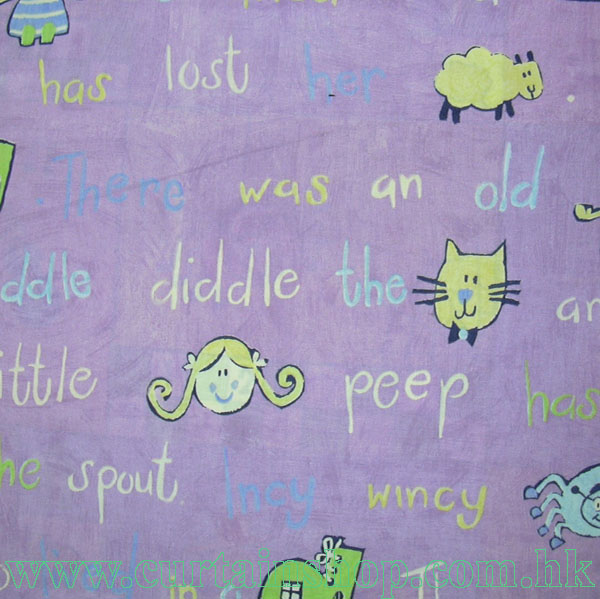 has lost her
There was an old
ddle diddle the
an
ittle peep has
he spout. Incy wincy
lived in a
www.curtainshop.com.hk